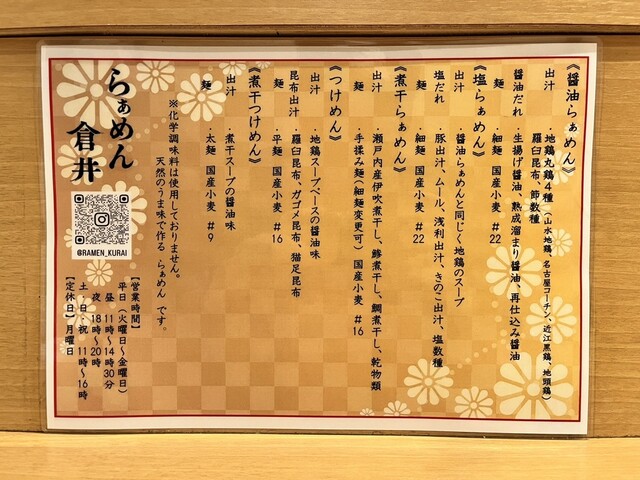 《醤油らぁめん》
出汁 ・地鶏丸鶏4種(山水地鶏、名古屋コーチン、近江黒鶏、地頭鶏)
羅臼昆布、節数種
醤油だれ 生揚げ醤油、熟成溜まり醤油、再仕込み醤油
麺 ・細麺 国産小麦 #22
《塩らぁめん》
出汁 ・醤油らぁめんと同じく地鶏のスープ
塩だれ ・豚出汁、ムール、浅利出汁、きのこ出汁、塩数種
麺 ・細麺 国産小麦 #22
《煮干らぁめん》
出汁 瀬戸内産伊吹煮干し、鯵煮干し、鯛煮干し、乾物類
麺 ・手揉み麺(細麺変更可) 国産小麦 #16
《つけめん》
出汁 ・地鶏スープベースの醤油味
昆布出汁 ・羅臼昆布、ガゴメ昆布、猫足昆布
麺 ・平麺 国産小麦 #16
《煮干つけめん》
出汁 煮干スープの醤油味
麺 ・太麺 国産小麦 #9
※化学調味料は使用しておりません。
天然のうま味で作る らぁめん です。
らぁめん 倉井
@RAMEN_KURAI
【営業時間】
平日(火曜日〜金曜日)
昼 11時〜14時30分
夜 18時〜20時
土・日・祝 11時〜16時
【定休日】月曜日